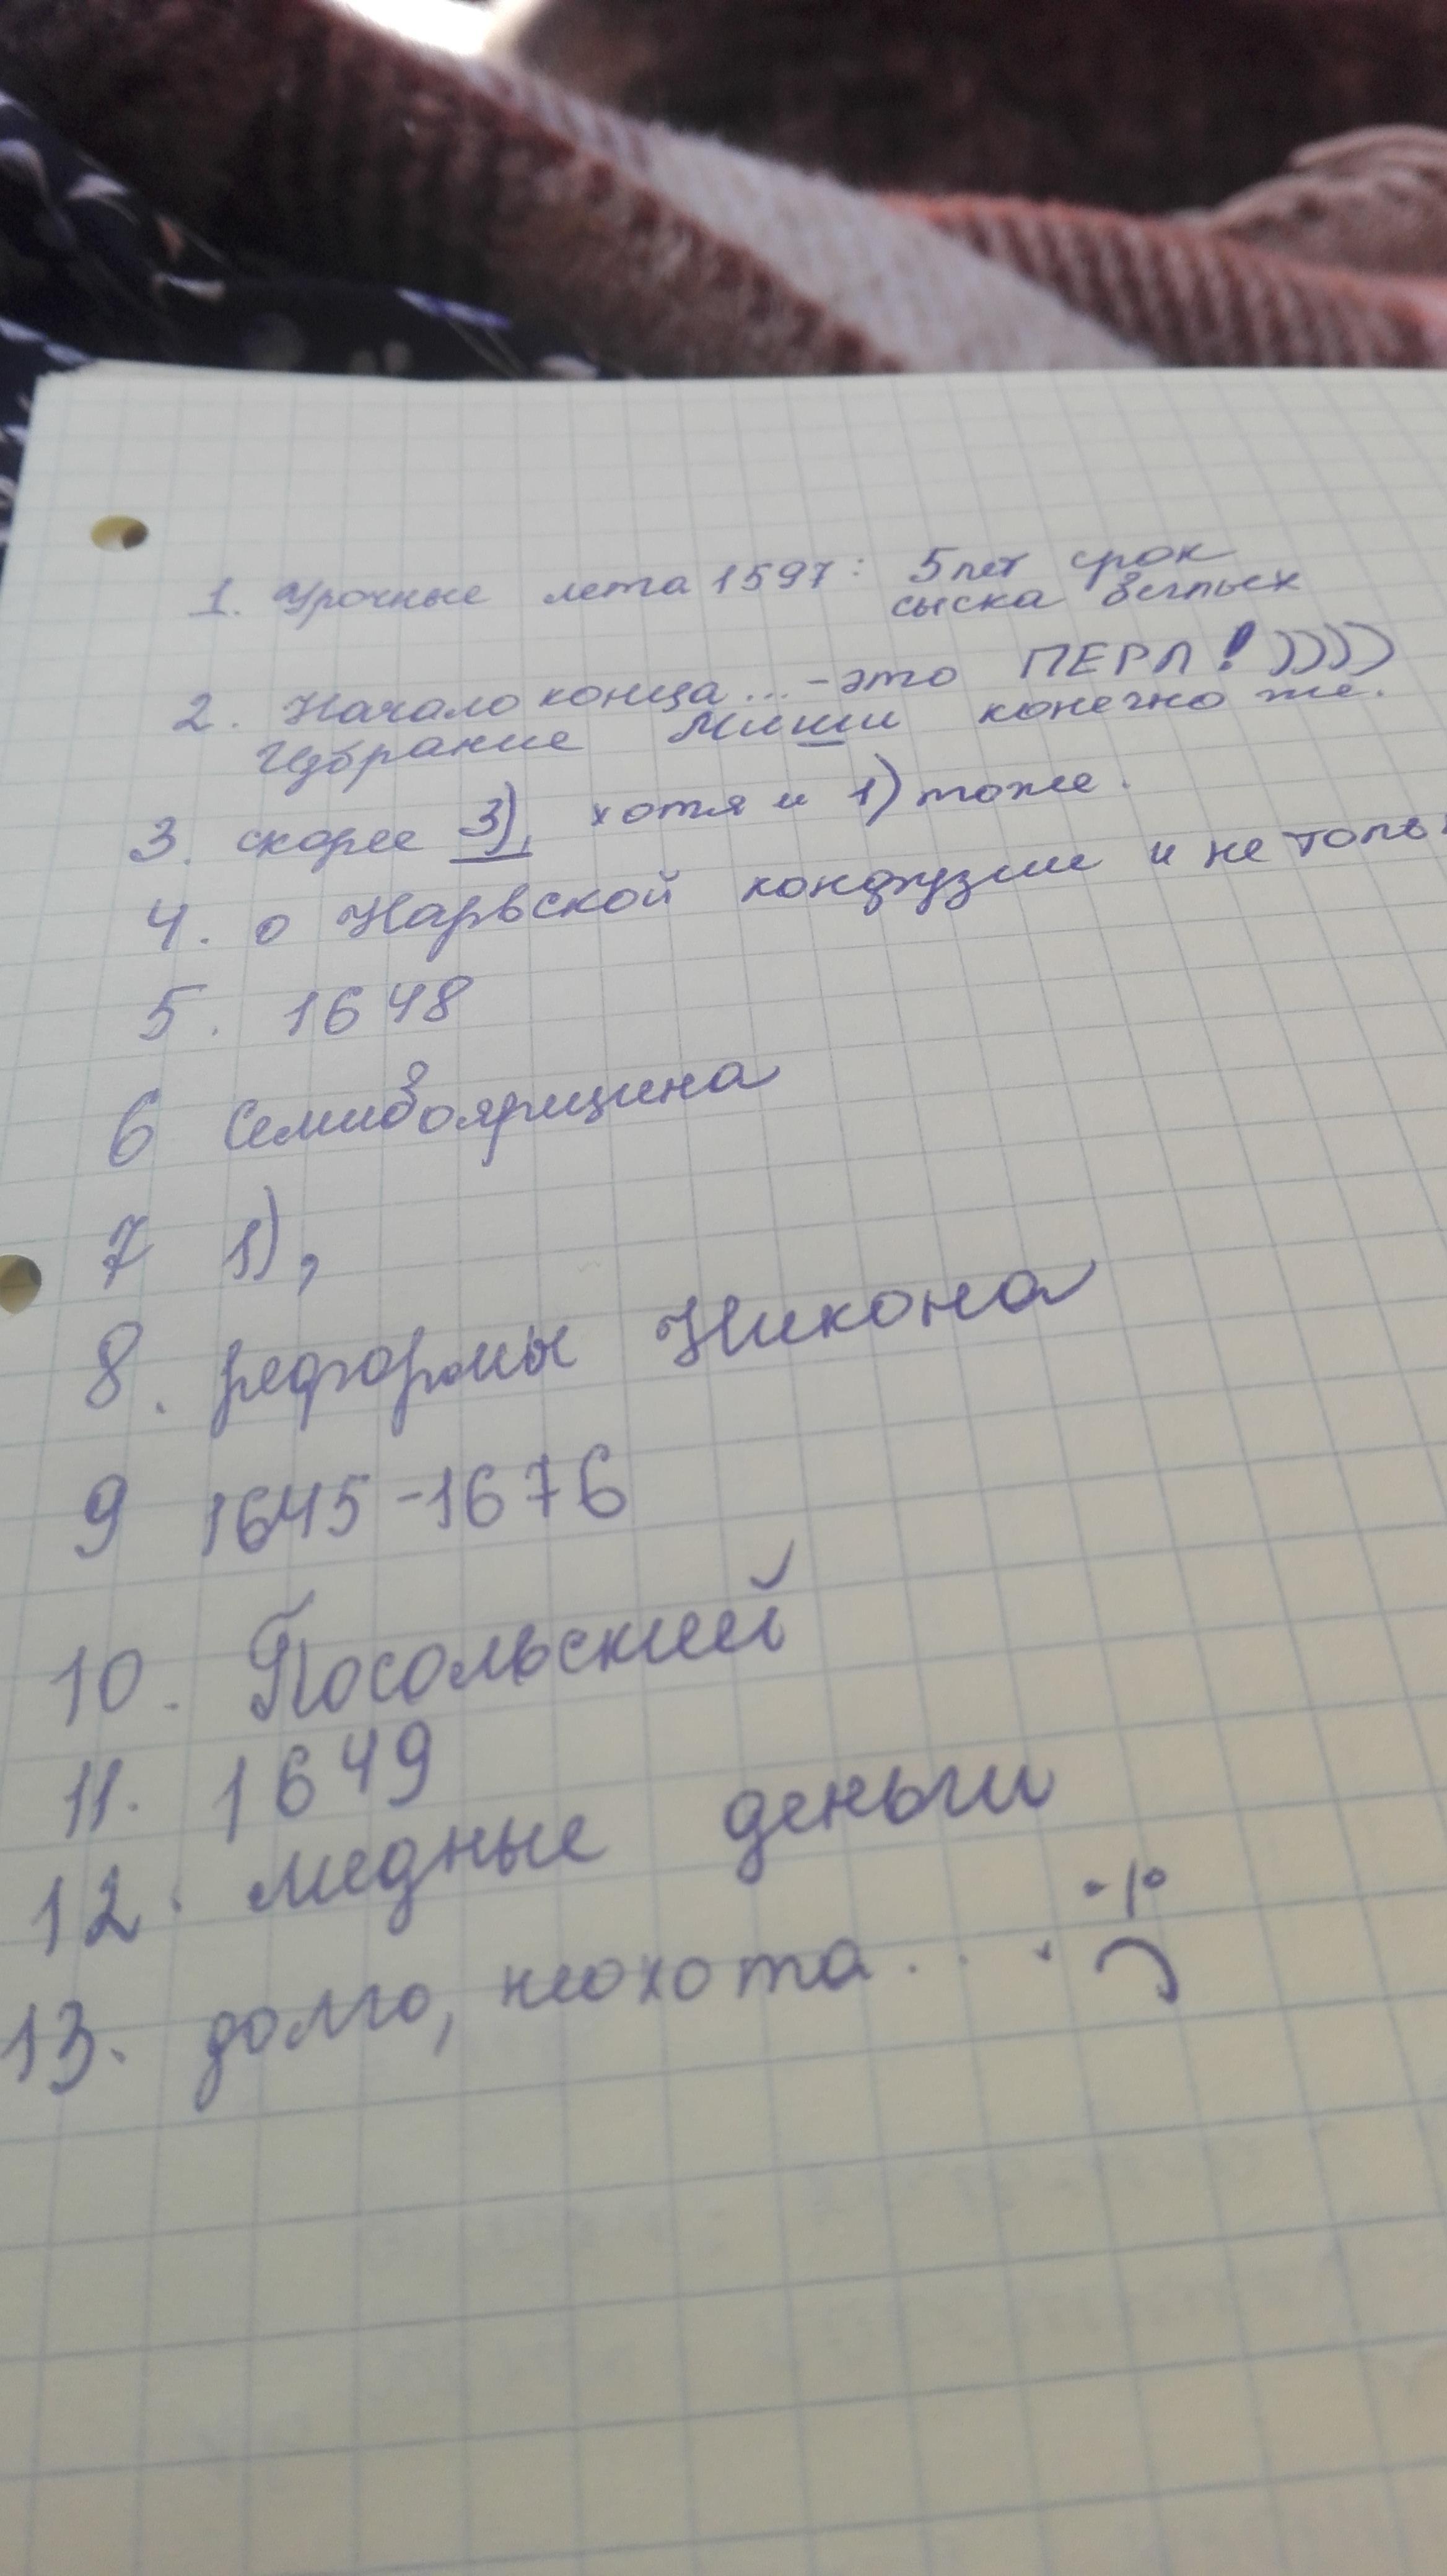 1. Урочные лета 1597: 5 лет срок
сыска беглых
2. Начало конца... - это ПЕРЛ!))))
Избрание Миши конечно же.
3. скорее 3), хотя и 1) тоже.
4. о Нарвской конфузии и не толь
5. 1648
6 Семибоярщина
7 1),
8. реформы Никона
9 1645-1676
10. Посольский
11. 1649
12. медные деньги
13. долго, неохота...